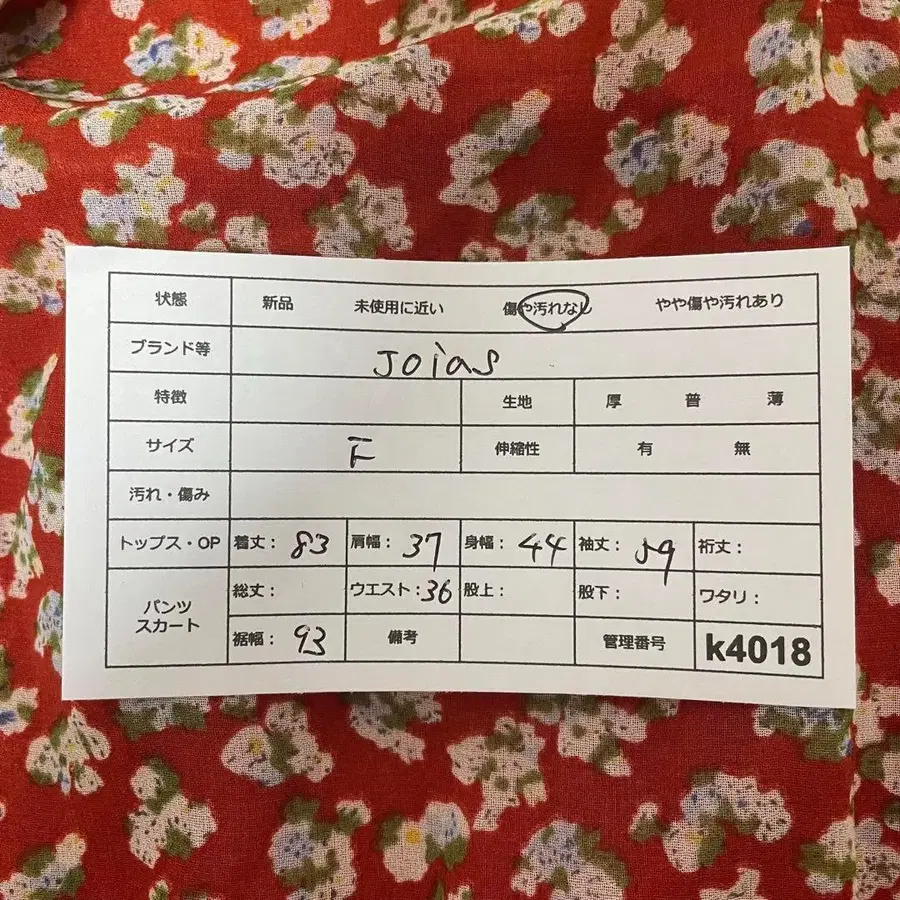 状態 新品 未使用に近い 傷や汚れなし やや傷や汚れあり
ブランド等 Joias
特徴 生地 厚 普 薄
サイズ F 伸縮性 有 無
汚れ・傷み
トップス・OP 着丈: 83 肩幅: 37 身幅: 44 袖丈: 59 裄丈:
パンツ
スカート
総丈: ウエスト:36 股上: 股下: ワタリ:
裾幅: 93 備考 管理番号 k4018